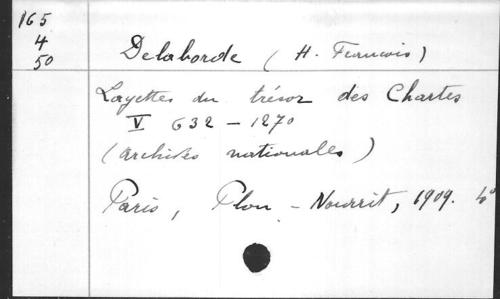 165
4
50
Delaborde ( H. Francois )
Layettes du trésor des Chartes
V 632 - 1270
( Archives nationales )
Paris, Plon - Nourrit, 1909. 4°